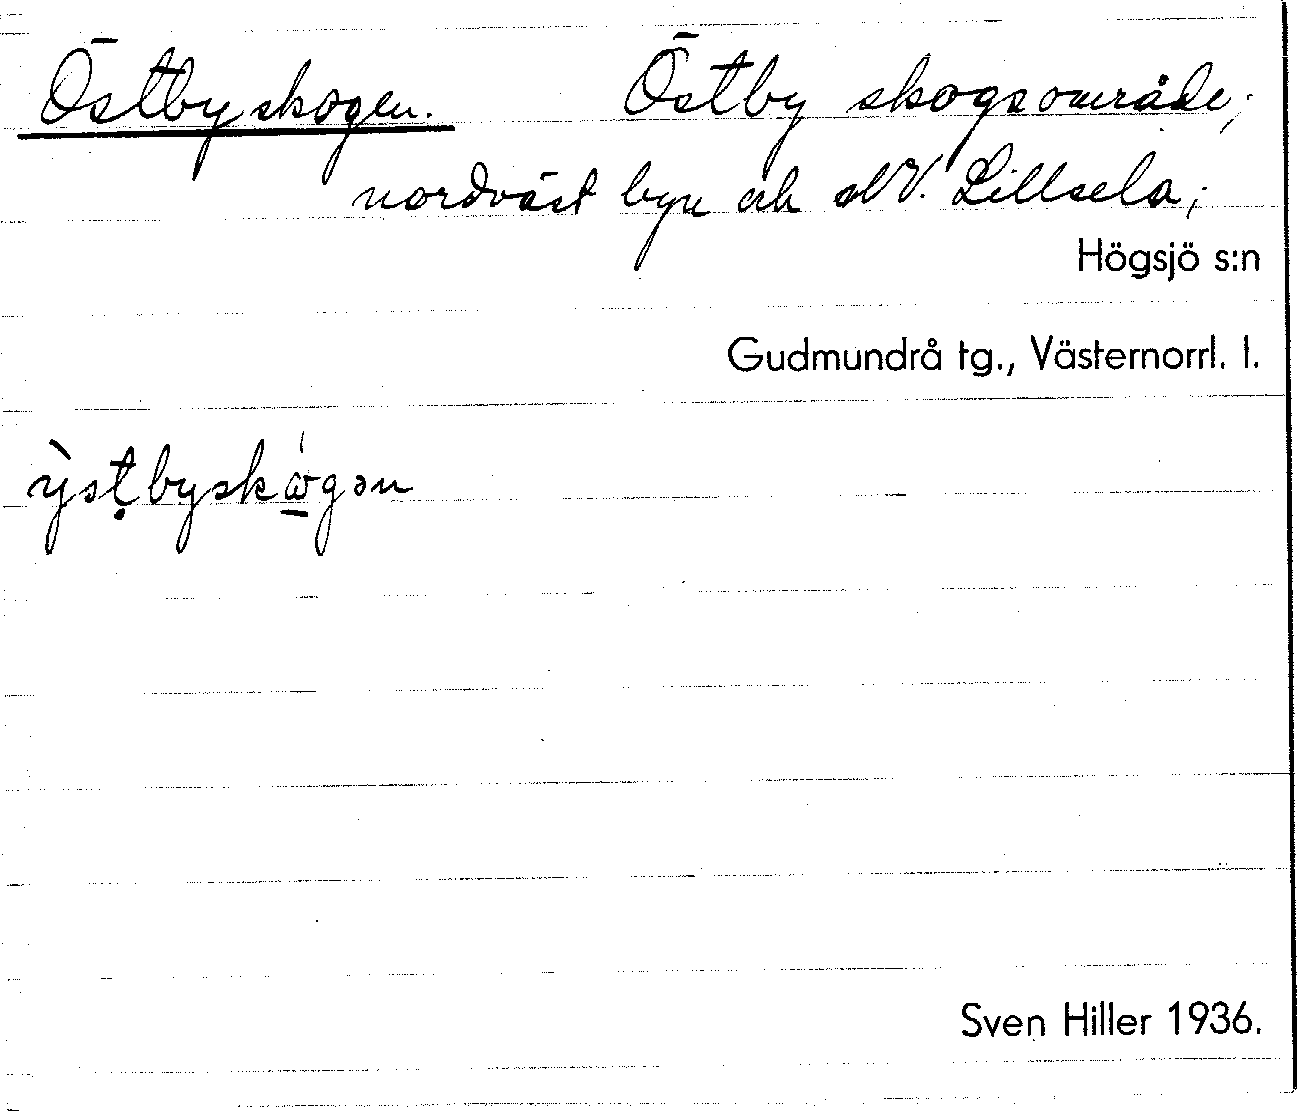 Östbyskogen. Östby skogsområde;
nordväst byn och NV. Lillsela;
Högsjö s:n
Gudmundrå tg., Västernorrl. l.
ỳsṭbyskώ̱gən
Sven Hiller 1936.